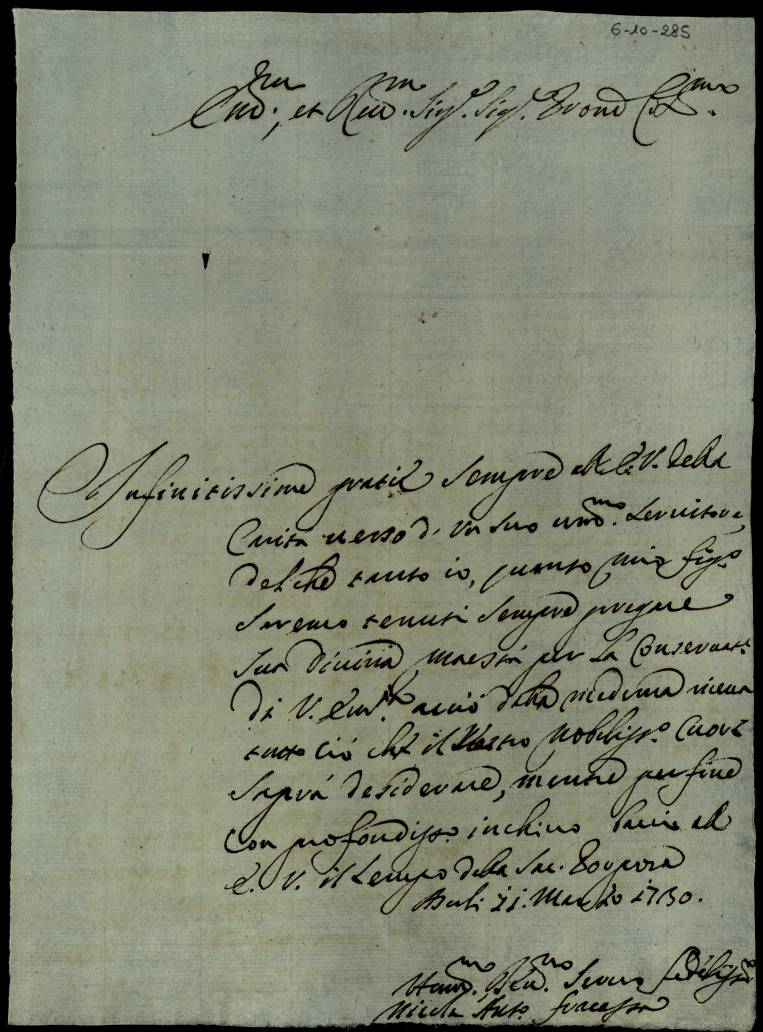 6-10-285
Em.mo, et Rev.mo Sig.r Sig.r Prone Col.mo
Infinitissime gratie sempre all'E.V. della
Carità verso di un suo um.mo servitore,
del che tanto io, quanto mio figo
saremo tenuti sempre pregare
Sua Divina Maestà per la Conservat.e
di V. Em.za acciò dalla medema riceva
tutto ciò che il Vostro nobiliss.o Cuore
saprà desiderare, mentre per fine
con profondiss.o inchino bacio all'
E. V. il Lempo della Sac. Porpora
11. Marzo 1730.
Hum.mo, Dev.mo Servo fedeliss.o
Nicola Ant.o Fracassa